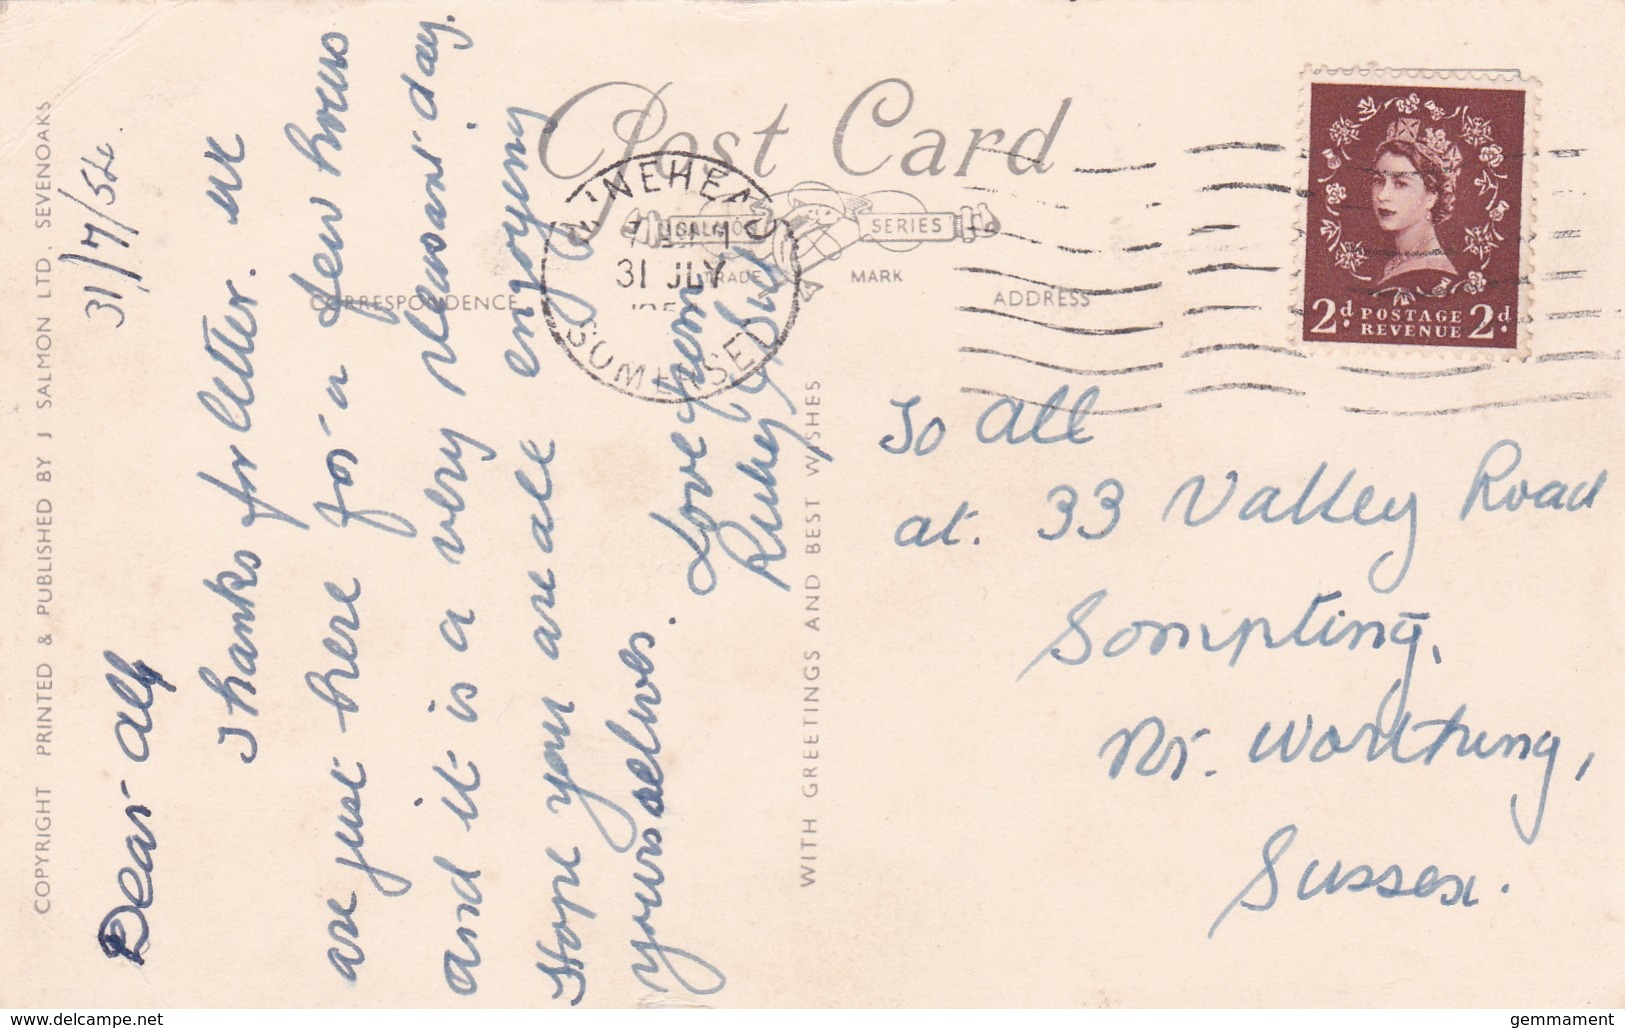 COPYRIGHT PRINTED & PUBLISHED BY J SALMON LTD. SEVENOAKS
31/7/54.
Dear All
Thanks for letter. we
are just here for a few hours
and it is a very pleasant day.
Hope you are all enjoying
yourselves.
Love from
Ruby & Sid
Post Card
SALMON SERIES
TRADE MARK
CORRESPONDENCE
ADDRESS
MINEHEAD
31 JLY
SOMERSET
WITH GREETINGS AND BEST WISHES
2d. POSTAGE REVENUE 2d.
To All
at. 33 Valley Road
Sompting,
Nr. Worthing,
Sussex.
gemmament